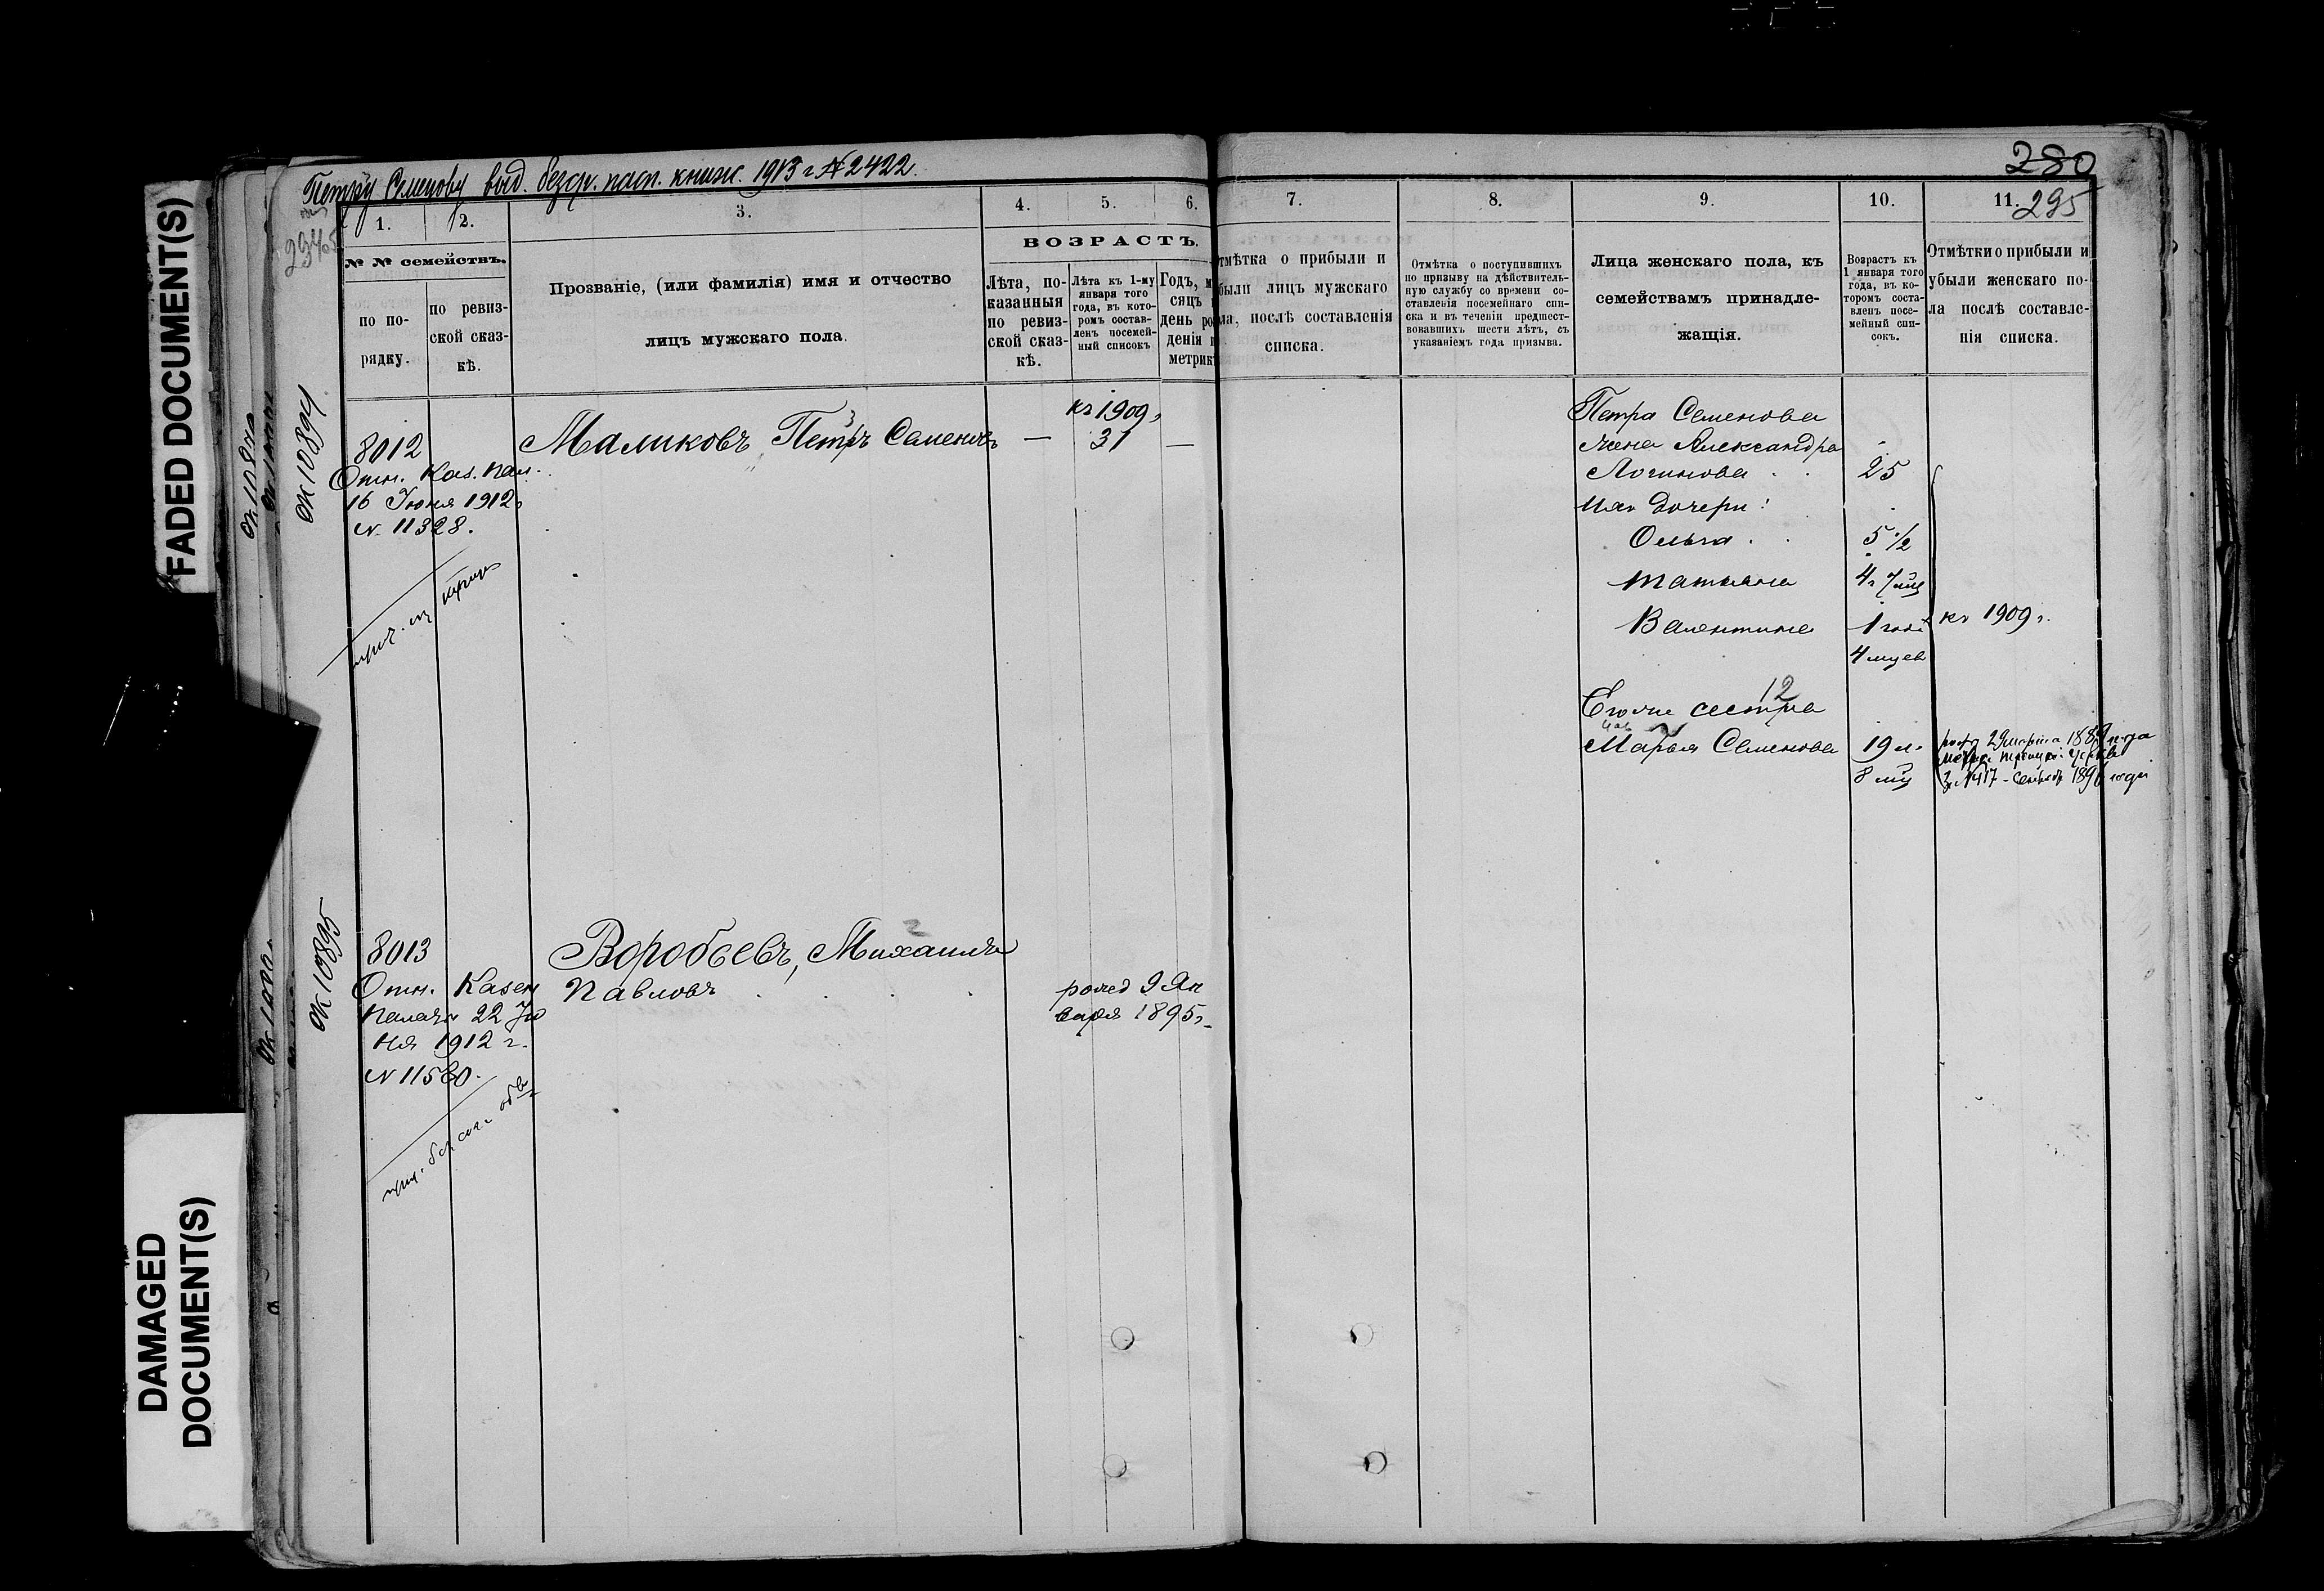 FADED DOCUMENT(S)
DAMAGED
DOCUMENT(S)
Петру Семенову выд. безср. пасп. книж. 1913 г № 2422.
280
295
1.
2.
3.
4.
5.
6.
7.
8.
9.
10.
11.
№ № семействъ.
по по-
рядку.
по ревиз-
ской сказ-
кѣ.
Прозваніе, (или фамилія) имя и отчество
лицъ мужскаго пола.
ВОЗРАСТЪ.
Лѣта, по-
казанныя
по ревиз-
ской сказ-
кѣ.
Лѣта къ 1-му
января того
года, въ кото-
ромъ состав-
ленъ посемей-
ный списокъ
Годъ, м
сяцъ
день ро
денія п
метрик
тмѣтка о прибыли и
были лицъ мужскаго
ла, послѣ составленія
списка.
Отмѣтка о поступившихъ
по призыву на дѣйствитель-
ную службу со времени со-
ставленія посемейнаго спи-
ска и въ теченіи предшест-
вовавшихъ шести лѣтъ, съ
указаніемъ года призыва.
Лица женскаго пола, къ
семействамъ принадле-
жащія.
Возрастъ къ
1 января того
года, въ ко-
торомъ соста-
вленъ посе-
мейный спи-
сокъ.
Отмѣтки о прибыли и
убыли женскаго по-
ла послѣ составле-
нія списка.
ок 10894
8012
Отн. Каз. Пал.
16 Іюня 1912 г
№ 11328.
Маликовъ Петръ Семеновъ
—
къ 1909 г
31
—
Петра Семенова
жена Александра
Логинова
25
ихъ дочери:
Ольга
5 1/2
Татьяна
4 г 7 мц
Валентина
1 годъ
4 мцев
къ 1909 г.
12
Его же сестра
Марья Семенова
19 л.
8 мц
29 марта 188
ок 10895
8013
Отн. Казен
Палаты 22 Ію
ня 1912 г.
№ 11580.
Воробьевъ, Михаилъ
Павловъ
рожд 9 Ян
варя 1895 г